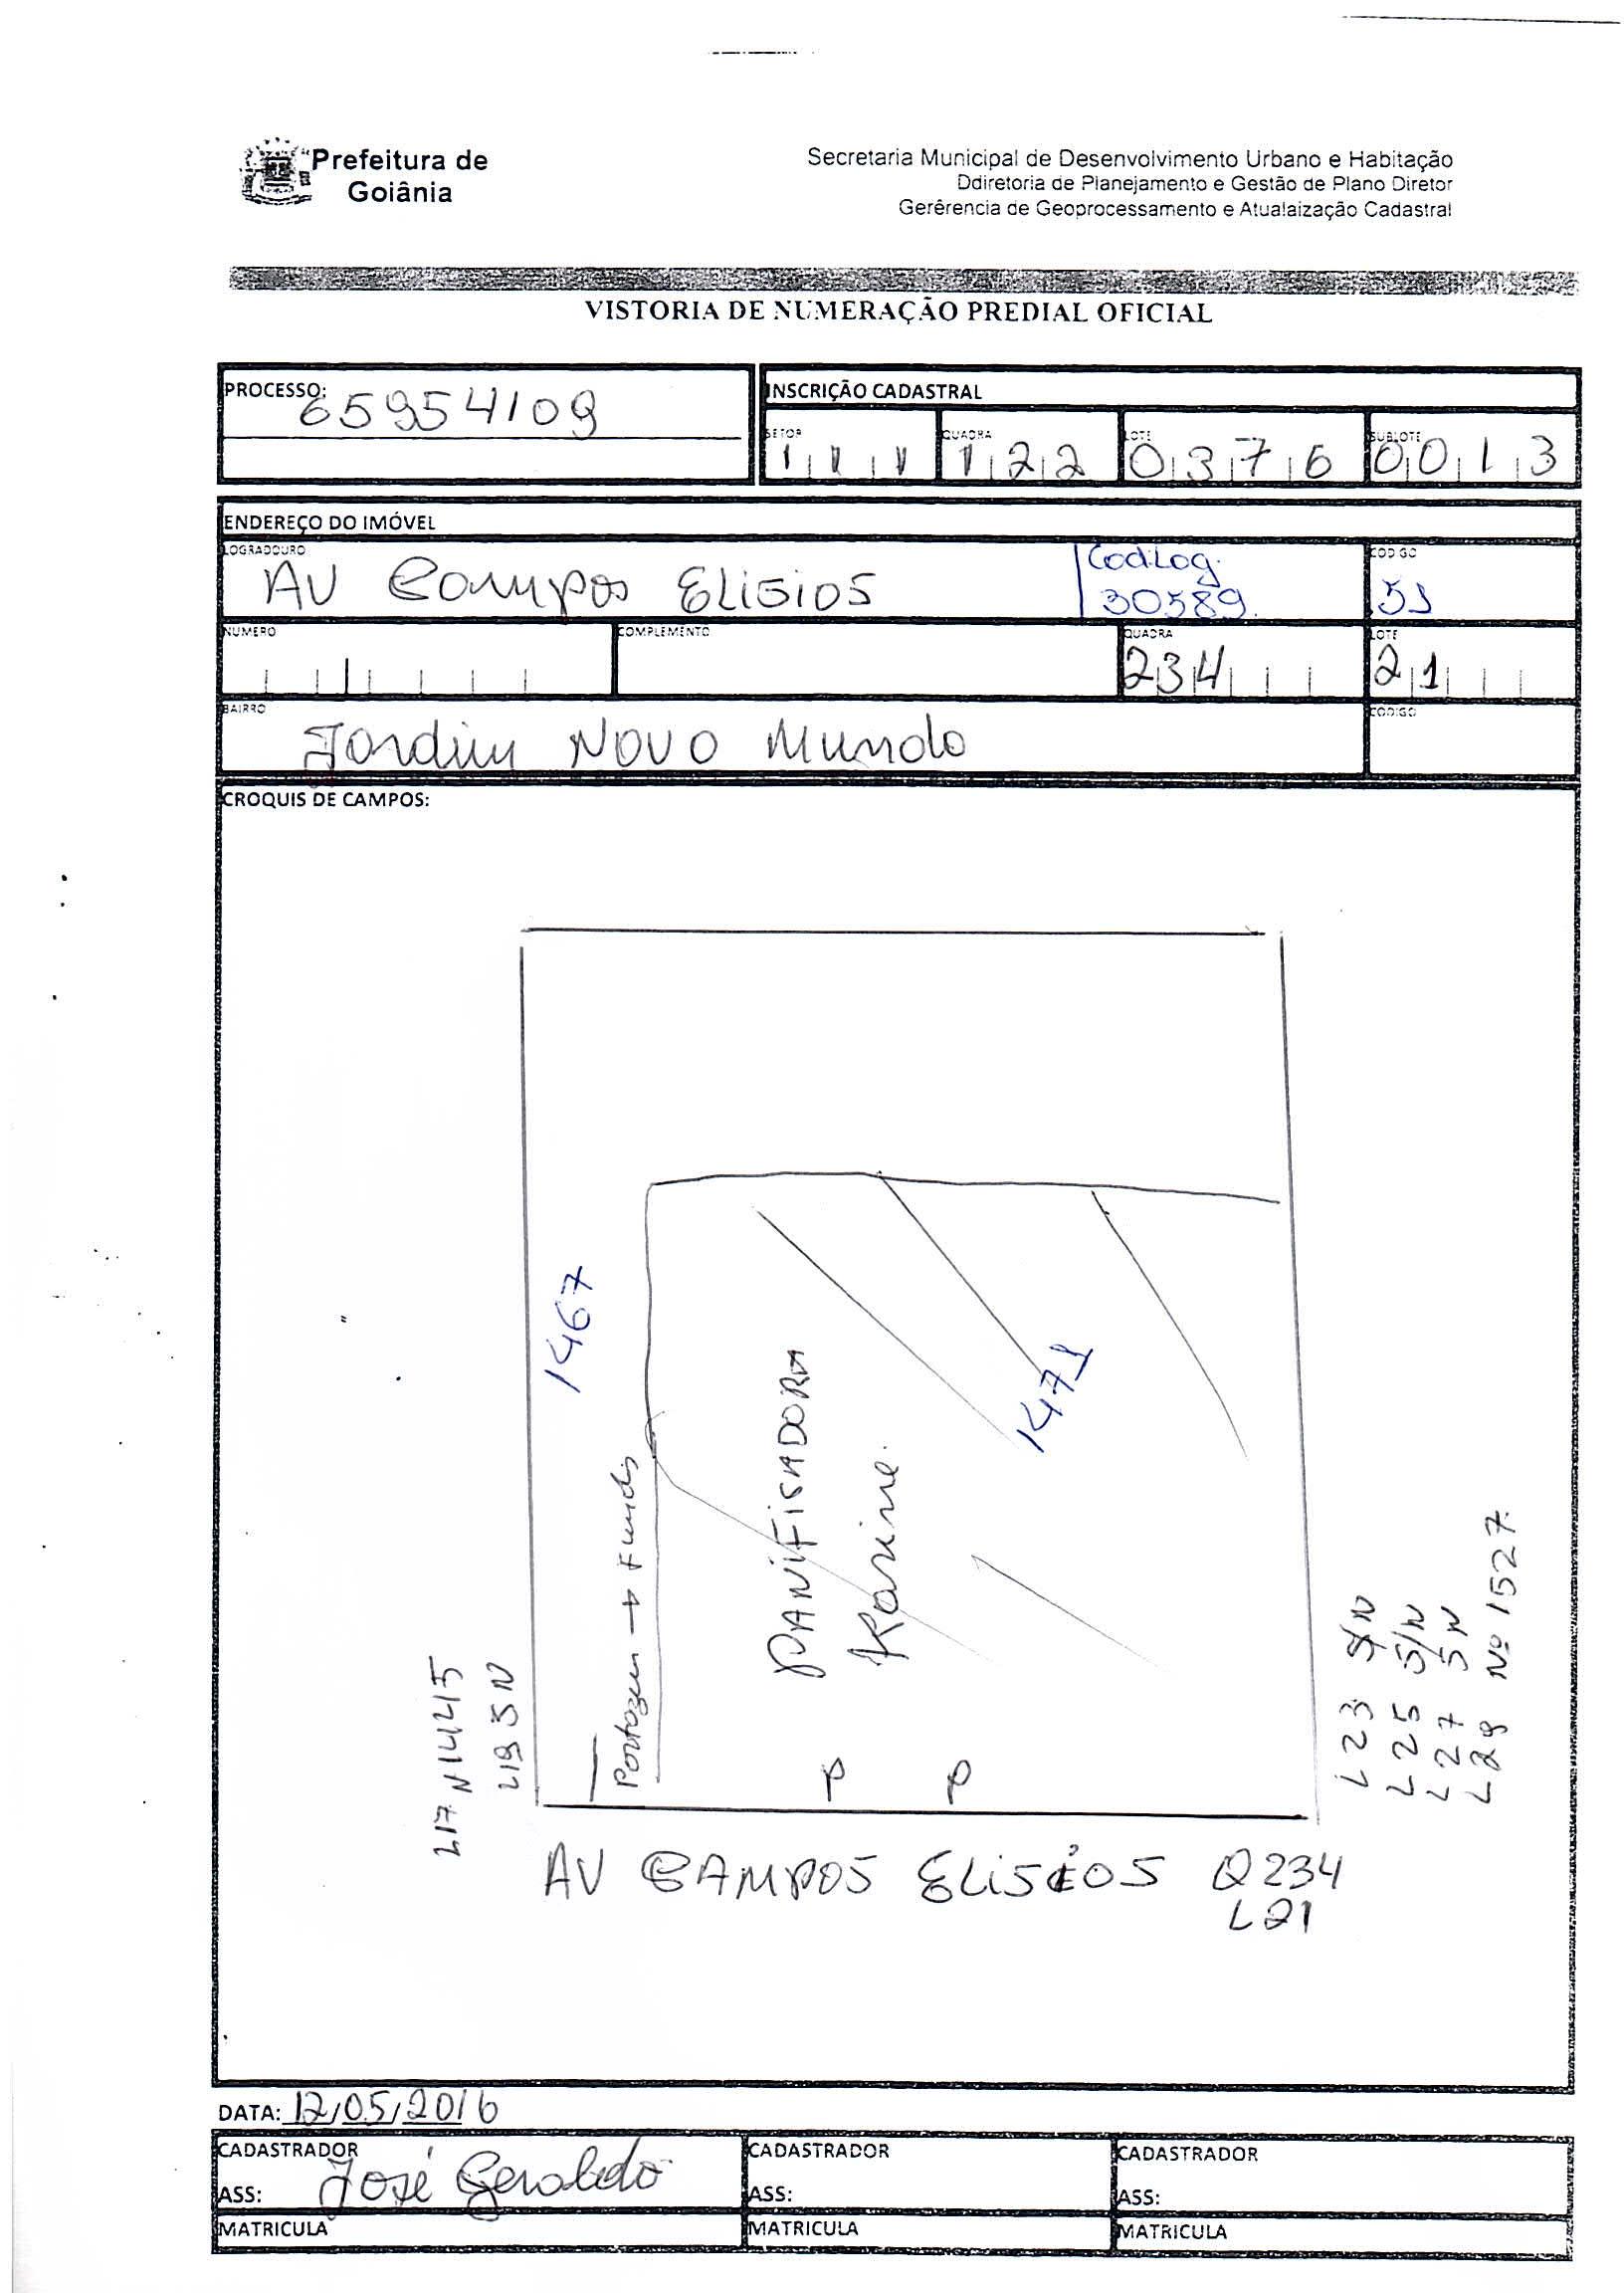 Prefeitura de
Goiânia
Secretaria Municipal de Desenvolvimento Urbano e Habitação
Ddiretoria de Planejamento e Gestão de Plano Diretor
Gerêrencia de Geoprocessamento e Atualaização Cadastral
VISTORIA DE NUMERAÇÃO PREDIAL OFICIAL
PROCESSO: 65954109
INSCRIÇÃO CADASTRAL
SETOR QUADRA LOTE SUBLOTE
122 0376 0013
ENDEREÇO DO IMÓVEL
LOGRADOURO CODIGO
AV Campos ELISIOS Cod.Log. 30589. 51
NUMERO COMPLEMENTO QUADRA LOTE
234 21
BAIRRO CODIGO
Jardim NOVO Mundo
CROQUIS DE CAMPOS:
1467
1471
Portagem → Fundos
PANIFISADORA
Karine.
L17 N 1445
L19 SN
L 23 S/N
L 25 S/N
L 27 SN
L 29 Nº 1527
P P
AV CAMPOS ELISIOS Q234
L21
DATA: 12/05/2016
CADASTRADOR CADASTRADOR CADASTRADOR
ASS: José Geraldo ASS: ASS:
MATRICULA MATRICULA MATRICULA